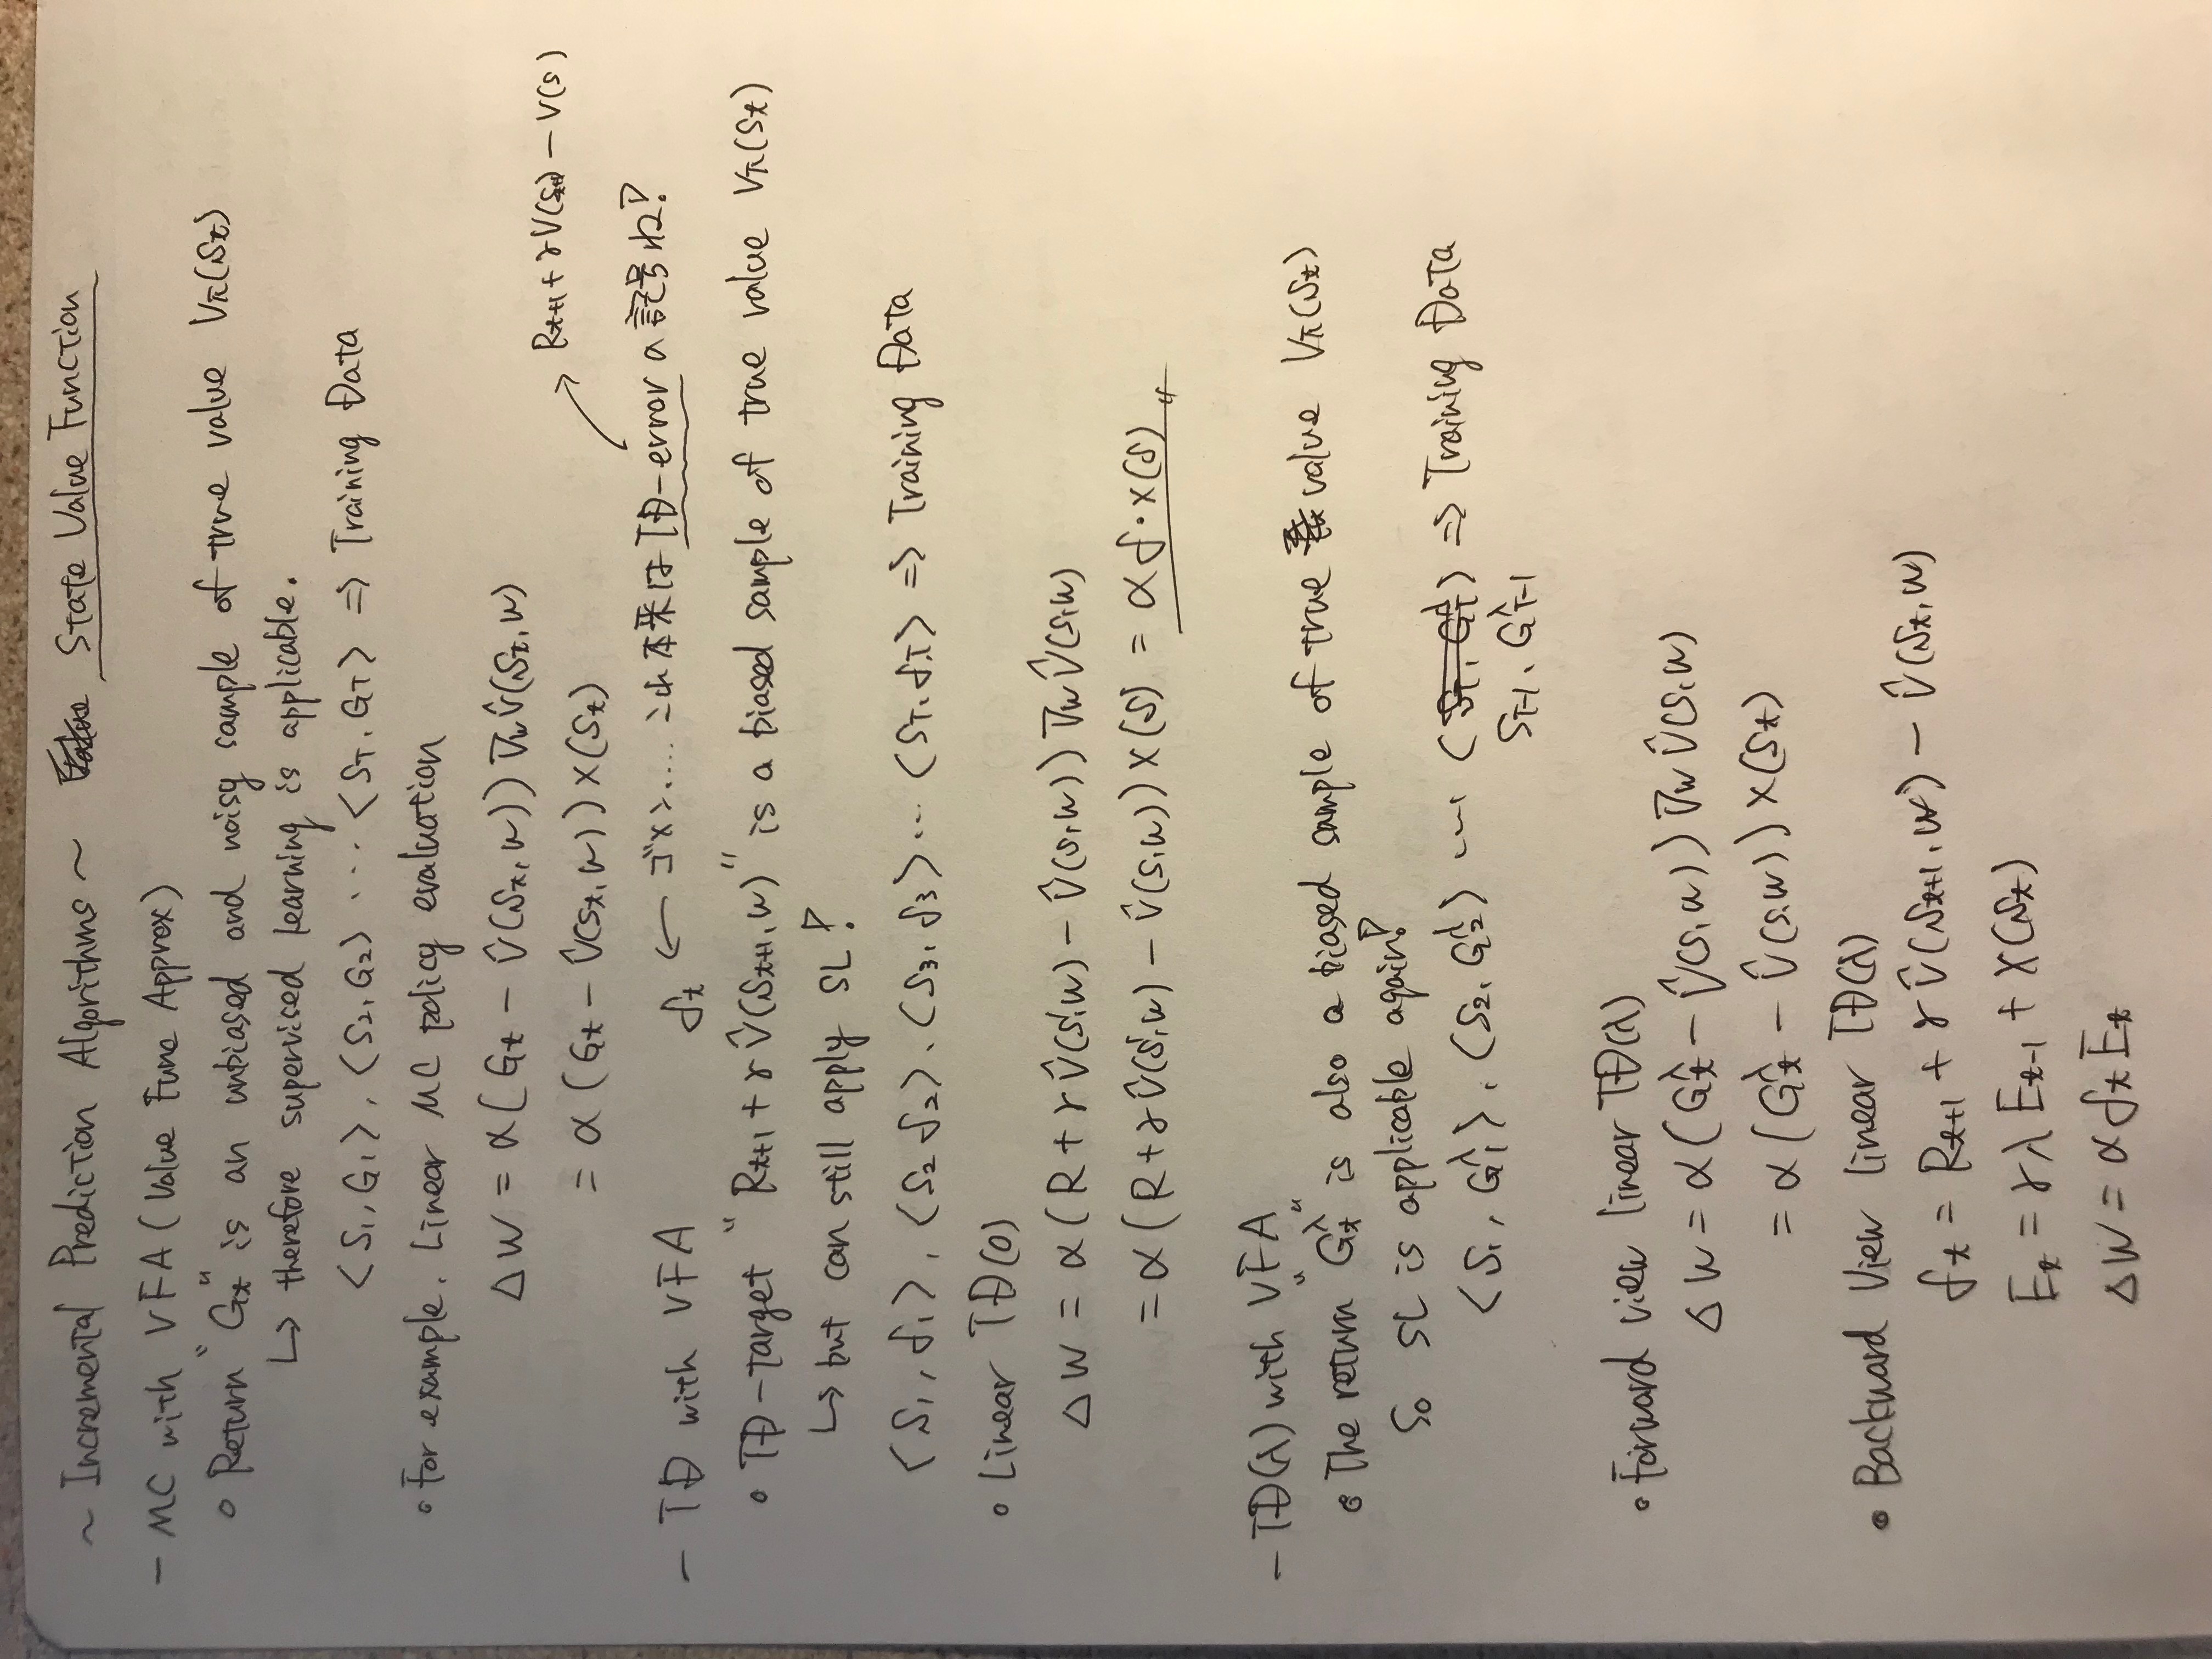 ~ Incremental Prediction Algorithms ~ State Value Function
- MC with VFA (Value Func Approx)
∘ Return "Gt" is an unbiased and noisy sample of true value Vπ(St)
↳ therefore supervised learning is applicable.
<S1, G1>, <S2, G2> ... <ST, GT> => Training Data
∘ For example, Linear MC policy evaluation
ΔW = α(Gt - V̂(St, w)) ∇w V̂(St, w)
= α(Gt - V̂(St, w)) X(St)
Rt+1 + γV(St+1) - V(s)
- TD with VFA δt ← ゴメン.... これ本来は TD-error の 記号ね!
∘ TD-target "Rt+1 + γ V̂(St+1, w)" is a biased sample of true value Vπ(St)
↳ but can still apply SL!
<S1, δ1>, <S2 δ2>, <S3, δ3> ... <ST, δT> => Training Data
∘ Linear TD(0)
ΔW = α(R + γ V̂(s', w) - V̂(s, w)) ∇w V̂(s, w)
= α(R + γ V̂(s', w) - V̂(s, w)) X(S) = α δ・X(S)〃
- TD(λ) with VFA
∘ The return "Gtλ" is also a biased sample of true value Vπ(St)
So SL is applicable again!
<S1, G1λ>, <S2, G2λ> ... <ST, GTλ> => Training Data
ST-1, GT-1λ
∘ Forward view linear TD(λ)
ΔW = α(Gtλ - V̂(s, w)) ∇w V̂(s, w)
= α(Gtλ - V̂(s, w)) X(St)
• Backward View linear TD(λ)
δt = Rt+1 + γ V̂(St+1, w) - V̂(St, w)
Et = γλ Et-1 + X(St)
ΔW = α δt Et